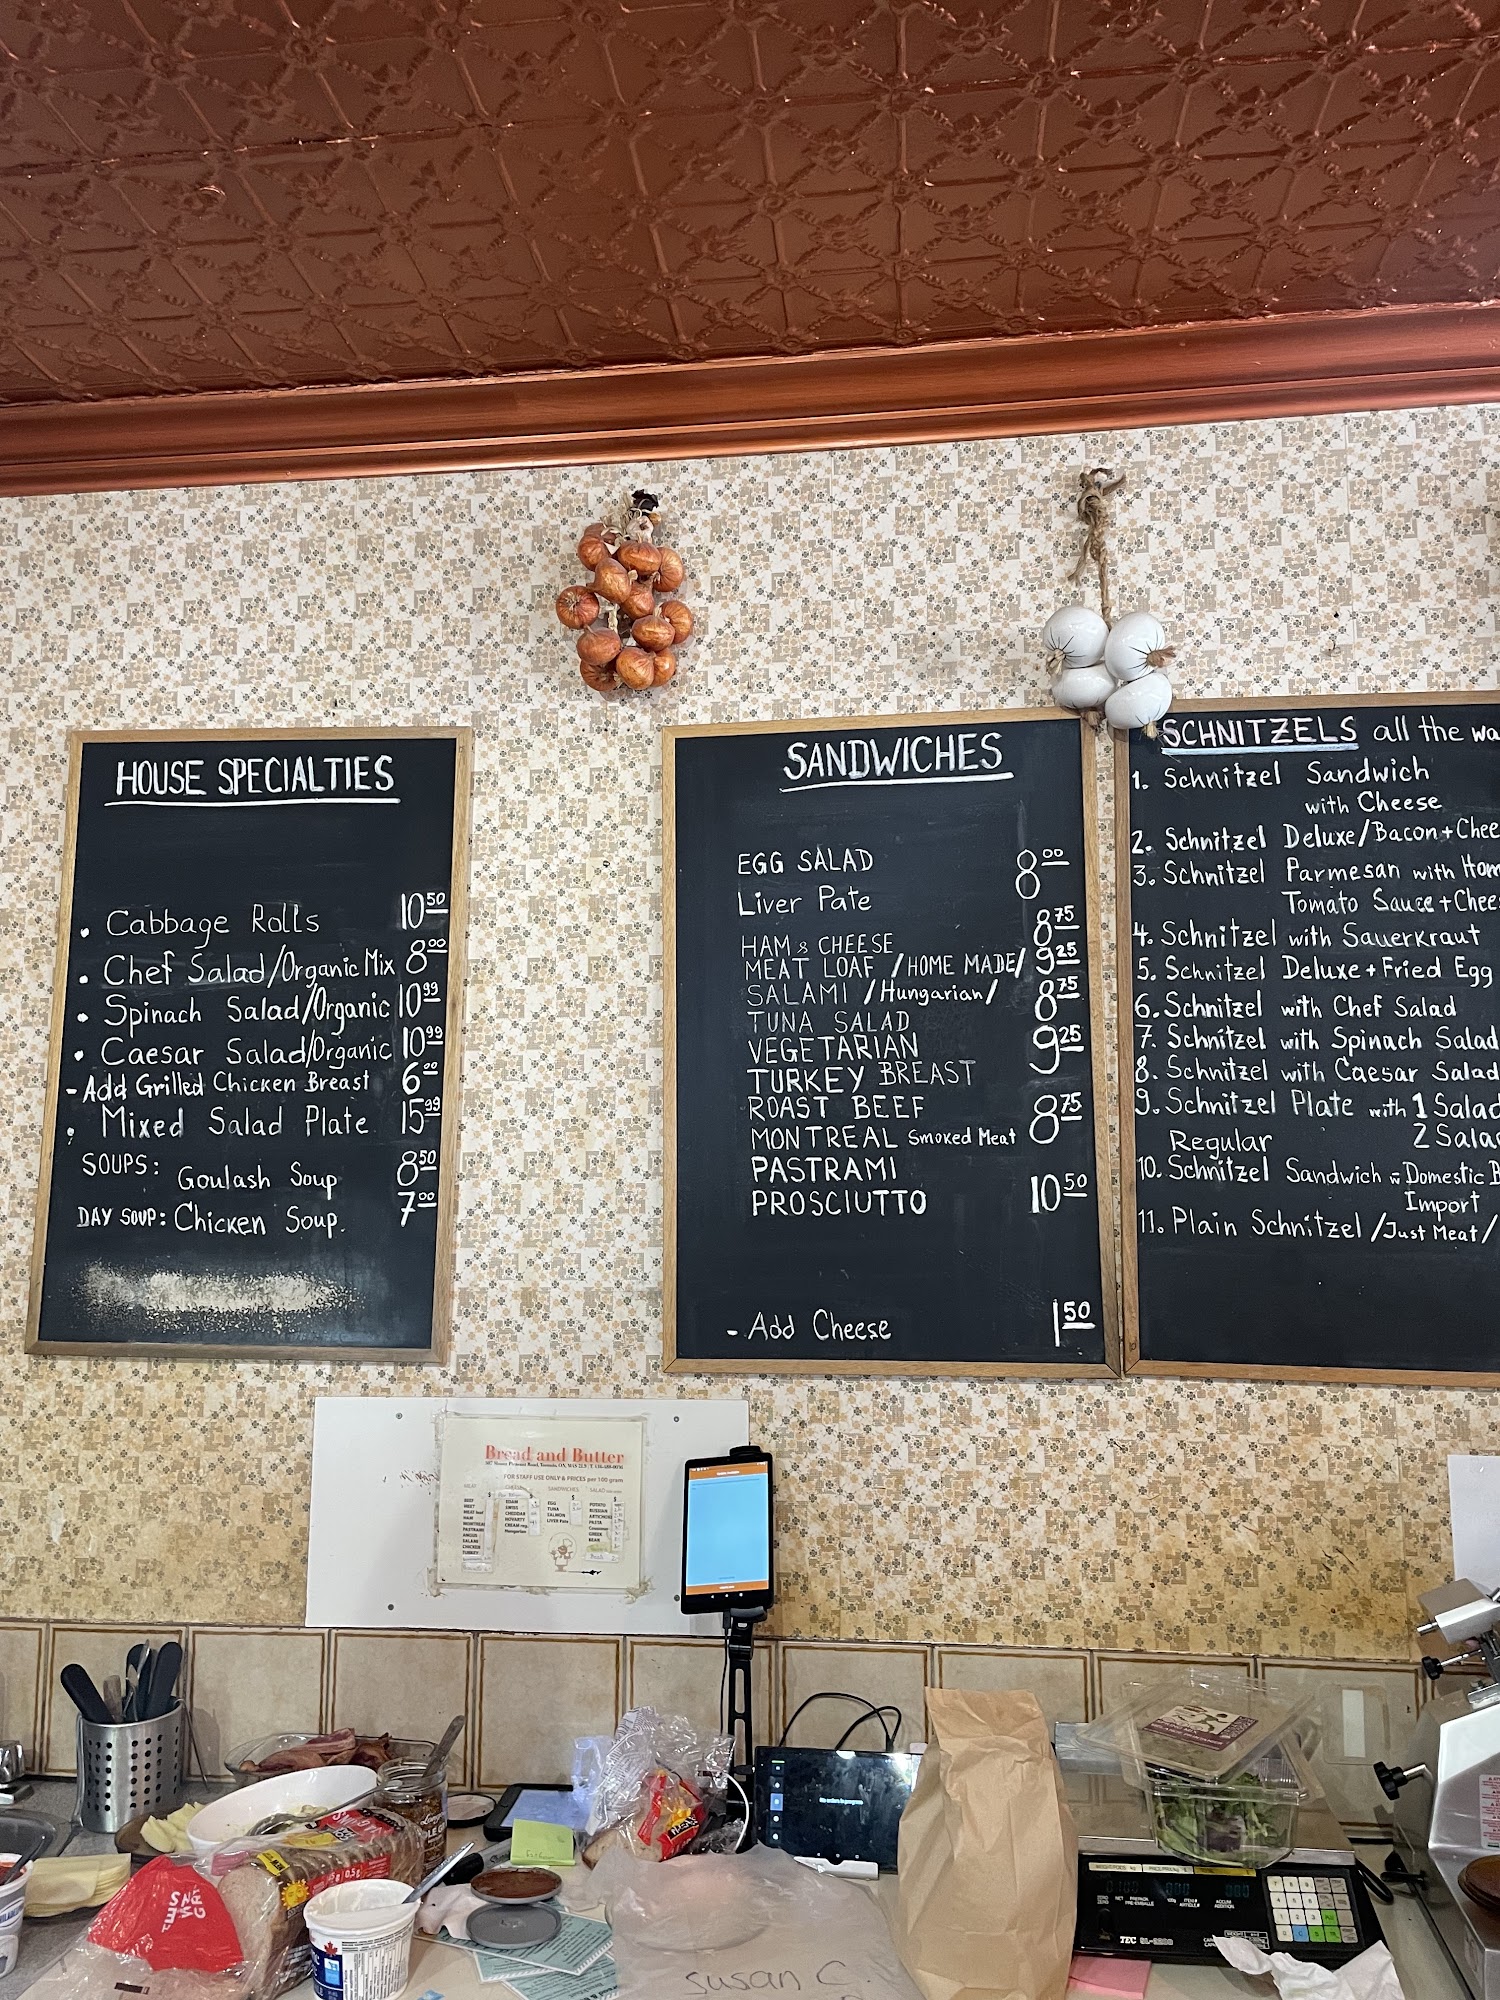 HOUSE SPECIALTIES
. Cabbage Rolls 10.50
. Chef Salad/Organic Mix 8.00
. Spinach Salad/Organic 10.99
. Caesar Salad/Organic 10.99
- Add Grilled Chicken Breast 6.00
. Mixed Salad Plate 15.99
SOUPS: Goulash Soup 8.50
DAY SOUP: Chicken Soup. 7.00
SANDWICHES
EGG SALAD 8.00
Liver Pate
HAM & CHEESE 8.75
MEAT LOAF /HOME MADE/ 9.25
SALAMI /Hungarian/ 8.75
TUNA SALAD
VEGETARIAN 9.25
TURKEY BREAST
ROAST BEEF 8.75
MONTREAL Smoked Meat
PASTRAMI
PROSCIUTTO 10.50
- Add Cheese 1.50
SCHNITZELS all the wa
1. Schnitzel Sandwich
with Cheese
2. Schnitzel Deluxe/Bacon+Chee
3. Schnitzel Parmesan with Hom
Tomato Sauce+Chees
4. Schnitzel with Sauerkraut
5. Schnitzel Deluxe+Fried Egg
6. Schnitzel with Chef Salad
7. Schnitzel with Spinach Salad
8. Schnitzel with Caesar Salad
9. Schnitzel Plate with 1 Salad
Regular 2 Salad
10. Schnitzel Sandwich w Domestic B
Import
11. Plain Schnitzel /Just Meat/
Bread and Butter
FOR STAFF USE ONLY & PRICES per 100 gram
SANDWICHES
EDAM
SWISS
CHEDDAR
HAVARTY
EGG
TUNA
SALMON
LIVER Pate
POTATO
RUSSIAN
PASTA
GREEK
BEAN
BEEF
HAM
PASTRAMI
SALAMI
CHICKEN
TURKEY
No orders in progress
TEC SL-9200
susan C.